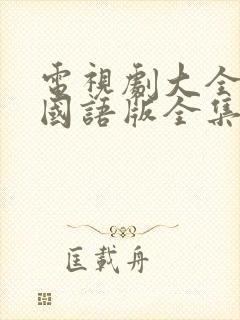 電視劇大全
國語版全集
匡載舟